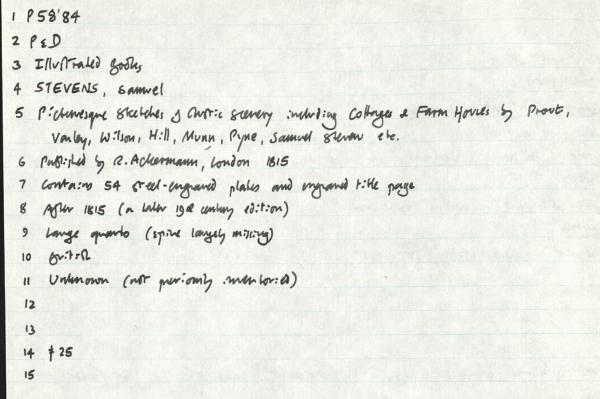 1 P58'84
2 P & D
3 Illustrated books
4 STEVENS, Samuel
5 Picturesque Sketches of Rustic Scenery including Cottages & Farm Houses by Prout,
Varley, Wilson, Hill, Munn, Pyne, Samuel Steven etc.
6 Published by R. Ackermann, London 1815
7 Contains 54 steel-engraved plates and engraved title page
8 After 1815 (a later 19th century edition)
9 Large quarto (spine largely missing)
10 British
11 Unknown (not previously inventoried)
12
13
14 £25
15